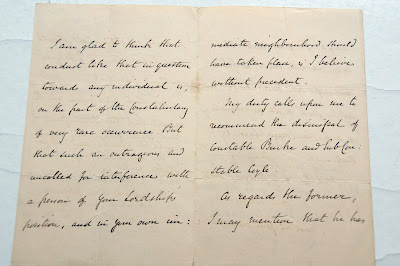 I am glad to think that
conduct like that in question
towards any individual is,
on the part of the Constabulary
of very rare occurrence But
that such an outrageous and
uncalled for interference with
a person of Your Lordship's
position, and in your own im:
mediate neighbourhood should
have taken place, is I believe
without precedent.
My duty calls upon me to
recommend the dismissal of
Constable Burke and Sub Con:
stable Coyle
As regards the former,
I may mention that he has